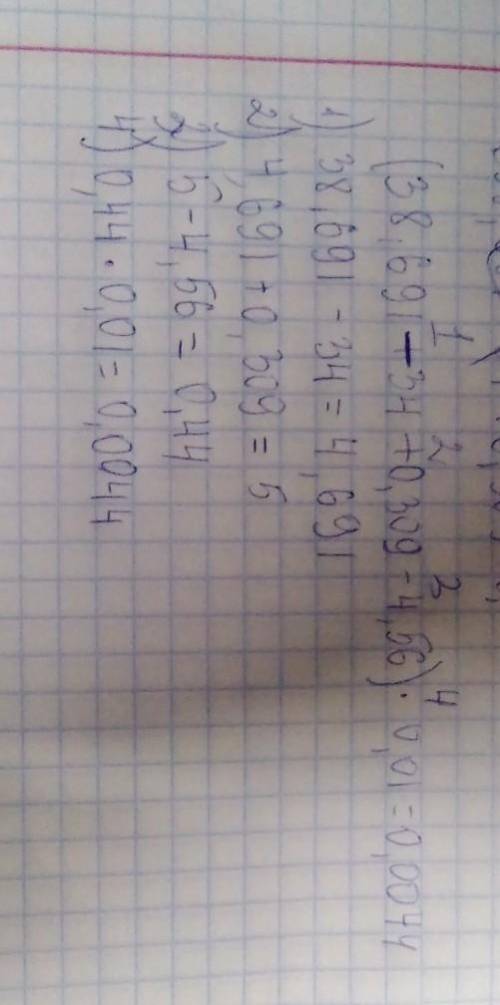 1 2 3 4
(38,691-34+0,309-4,56)·0,01=0,0044
1) 38,691-34=4,691
2) 4,691+0,309=5
3) 5-4,56=0,44
4) 0,44·0,01=0,0044